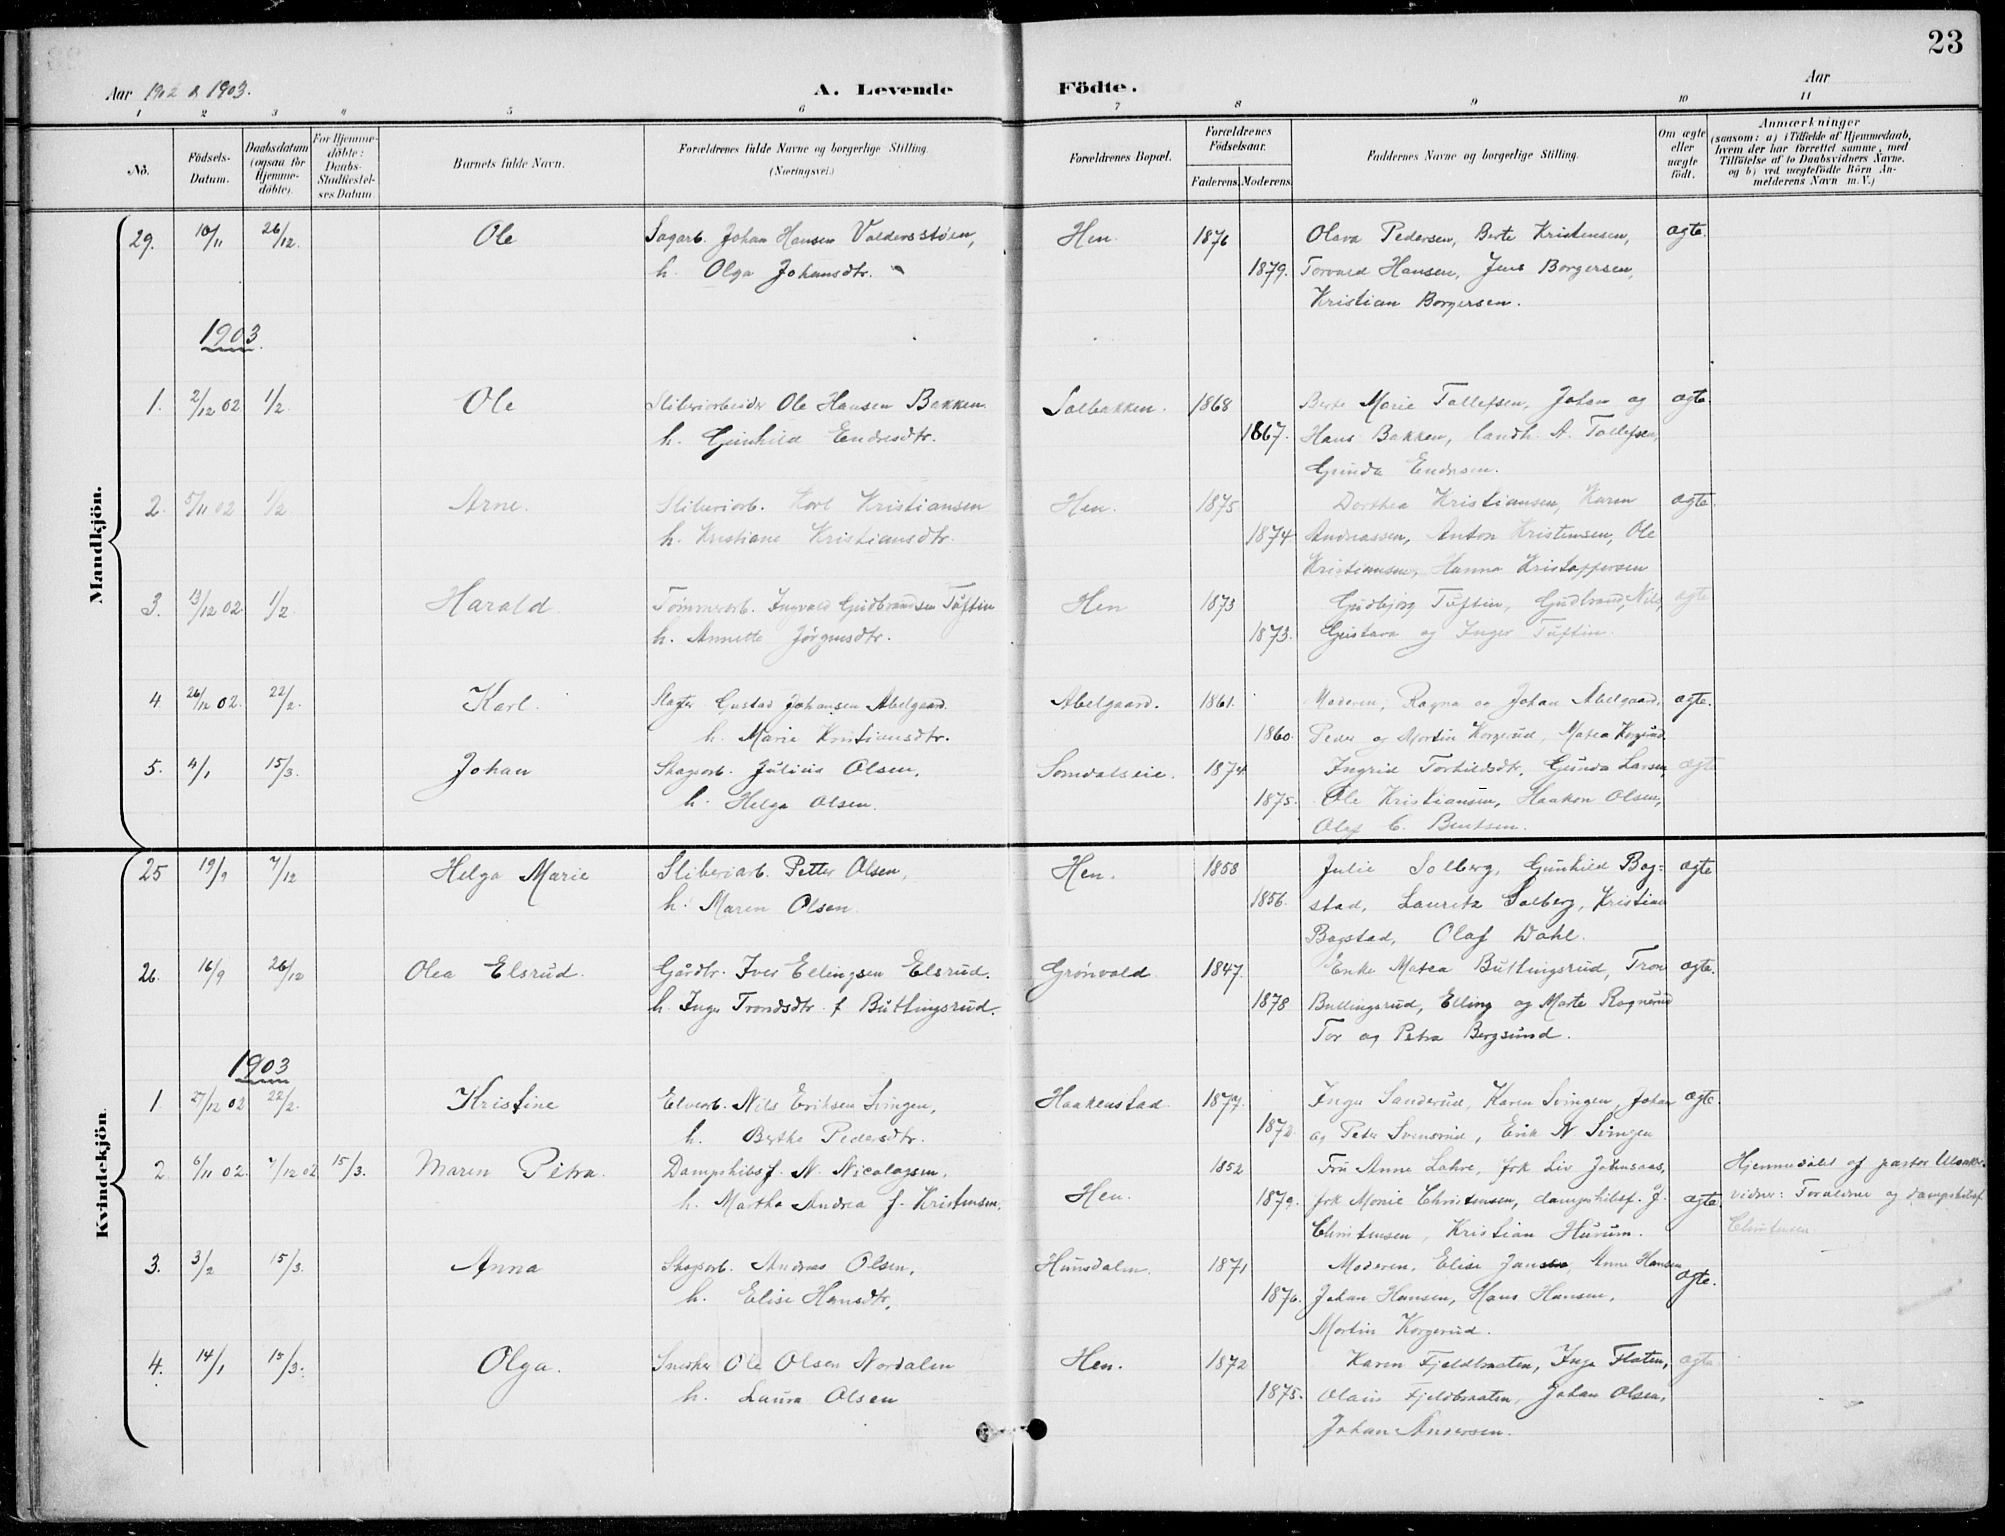 23
Aar 1902 & 1903.
A. Levende Födte.
Aar
1 2 3 4 5 6 7 8 9 10 11
No.
Födsels-Datum.
Daabsdatum (ogsaa for Hjemme-döbte).
For Hjemme-döbte: Daabs-Stadfæstel-ses Datum
Barnets fulde Navn.
Forældrenes fulde Navne og borgerlige Stilling. (Næringsvei.)
Forældrenes Bopæl.
Forældrenes Födselsaar.
Faderens. Moderens.
Faddernes Navne og borgerlige Stilling.
Om ægte eller uægte födt.
Anmærkninger
(saasom: a) i Tilfælde af Hjemmedaab, hvem der har forrettet samme, med Tilföielse af to Daabsvidners Navne. og b) ved uægtefödte Börn Anmelderens Navn m. V.)
Mandkjön.
29. 10/11 26/12. Ole Sagarb. Johan Hansen Valdersstøen, Hen. 1876 Olava Pedersen, Berte Kristensen, ægte.
h. Olga Johansdtr. 1879. Torvald Hansen, Jens Borgersen,
Kristian Borgersen.
1903.
1. 2/12 02 1/2. Ole Sliberiarbeider Ole Hansen Bakken. Solbakken. 1868 Berte Marie Tollefsen, Johan og ægte.
h. Gunhild Endresdtr. 1867. Hans Bakken, landh. A. Tollefsen,
Gunda Endresen.
2. 5/11 02 1/2. Arne. Sliberiarb. Karl Kristiansen Hen. 1875 Dorthea Kristiansen, Karen ægte.
h. Kristiane Kristiansdtr. 1874. Andreassen, Anton Kristensen, Ole
Kristiansen, Hanna Kristoffersen
3. 13/12 02. 1/2. Harald Tømmerarb. Ingvald Gudbrandsen Tuftin Hen 1873 Gudbjørg Tuftin, Gudbrand, Nils, ægte
h. Annette Jørgensdtr. 1873. Gustava og Inger Tuftin.
4. 26/12 02. 22/2. Karl. Slagter Gustav Johansen Abelgaard. Abelgaard. 1861. Moderen, Ragna og Johan Abelgaard, ægte.
h. Marie Kristiansdtr. 1860. Peder og Martin Korgerud, Matea Korgerud.
5. 4/1 15/3. Johan Skogsarb. Julius Olsen. Somdalseie. 1874 Ingrid Torkildsdtr, Gunda Larsen ægte
h. Helga Olsen. 1875. Ole Kristiansen, Haakon Olsen,
Olaf C. Bentsen.
Kvindekjön.
25 19/9 7/12 Helga Marie Sliberiarb. Petter Olsen, Hen. 1858 Julie Solberg, Gunhild Bog- ægte
h. Maren Olsen. 1856. stad, Lauritz Solberg, Kristian
Bogstad, Olaf Dahl.
26. 16/9 26/12 Olea Elsrud. Gårdbr. Iver Ellingsen Elsrud. Grønvold 1847. Enke Matea Buttingsrud, Tron ægte.
h. Inger Trondsdtr. f. Buttingsrud. 1878 Buttingsrud, Elling og Marte Ragnerud
Tor og Petra Bergsund.
1903
1. 27/12 02 22/2. Kristine Elvearb. Nils Eriksen Svingen, Haakenstad 1877. Inger Sanderud, Karen Svingen, Johan ægte.
h. Berthe Pedersdtr. 1872. og Peter Svensrud, Erik N Svingen
2. 6/11 02. 7/12 02 15/3. Maren Petra. Dampskibsf. N. Nicolaysen, 1852 Fru Anne Lahre, frk Liv Johnsaas, Hjemmedøbt af pastor
h. Martha Andrea f. Kristensen. Hen. 1879. frk Monie Christensen, dampskibsf. J. ægte. vidner: Forældrene og dampskibsf.
Christensen, Kristian Hurum. Christensen.
3. 3/2 15/3. Anna Skogsarb. Andreas Olsen, Hunsdalen. 1871 Moderen, Elise Jansen, Anne Hansen ægte.
h. Elise Hansdtr, 1876. Johan Hansen, Hans Hansen,
Martin Korgerud.
4. 14/1 15/3. Olga. Snedker Ole Olsen Nordalen Hen. 1872 Karen Fjeldbraaten, Inga Flaten, ægte
h. Laura Olsen 1875. Olaus Fjeldbraaten, Johan Olsen,
Johan Andersen.